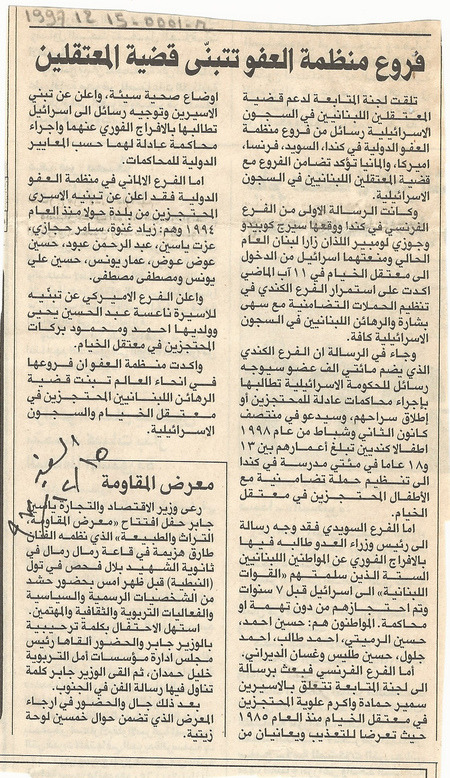 1997 12 15-0001-م
فروع منظمة العفو تتبنّى قضية المعتقلين
تلقت لجنة المتابعة لدعم قضية
المعتقلين اللبنانيين في السجون
الاسرائيلية رسائل من فروع منظمة
العفو الدولية في كندا، السويد، فرنسا،
اميركا، والمانيا تؤكد تضامن الفروع مع
قضية المعتقلين اللبنانيين في السجون
الاسرائيلية.
وكانت الرسالة الاولى من الفرع
الفرنسي في كندا ووقعها سيرج كوبيدو
وجوزي لومبير اللذان زارا لبنان العام
الحالي ومنعتهما اسرائيل من الدخول
الى معتقل الخيام في ١١ آب الماضي
اكدت على استمرار الفرع الكندي في
تنظيم الحملات التضامنية مع سهى
بشارة والرهائن اللبنانيين في السجون
الاسرائيلية كافة.
وجاء في الرسالة ان الفرع الكندي
الذي يضم مائتي الف عضو سيوجه
رسائل للحكومة الاسرائيلية تطالبها
بإجراء محاكمات عادلة للمحتجزين أو
إطلاق سراحهم، وسيدعو في منتصف
كانون الثاني وشباط من عام ١٩٩٨
اطفالا كنديين تبلغ أعمارهم بين ١٣
و١٨ عاما في مئتي مدرسة في كندا
الى تنظيم حملة تضامنية مع
الأطفال المحتجزين في معتقل
الخيام.
اما الفرع السويدي فقد وجه رسالة
الى رئيس وزراء العدو طالبه فيها
بالافراج الفوري عن المواطنين اللبنانيين
الستة الذين سلمتهم «القوات
اللبنانية» الى اسرائيل قبل ٧ سنوات
وتم احتجازهم من دون تهمة او
محاكمة. المواطنون هم: حسين احمد،
حسين الرميتي، احمد طالب، احمد
جلول، حسين طليس وغسان الديراني.
أما الفرع الفرنسي فبعث برسالة
الى لجنة المتابعة تتعلق بالاسيرين
سمير حمادة واكرم علوية المحتجزين
في معتقل الخيام منذ العام ١٩٨٥
حيث تعرضا للتعذيب ويعانيان من
اوضاع صحية سيئة، واعلن عن تبني
الاسيرين وتوجيه رسائل الى اسرائيل
تطالبها بالافراج الفوري عنهما واجراء
محاكمة عادلة لهما حسب المعايير
الدولية للمحاكمات.
اما الفرع الالماني في منظمة العفو
الدولية فقد اعلن عن تبنيه الاسرى
المحتجزين من بلدة حولا منذ العام
١٩٩٤ وهم: زياد غنوة، سامر حجازي،
عزت ياسين، عبد الرحمن عبود، حسين
عوض عوض، عمار يونس، حسين علي
يونس ومصطفى مصطفى.
واعلن الفرع الاميركي عن تبنّيه
للاسيرة ناعسة عبد الحسين يحيى
وولديها احمد ومحمود بركات
المحتجزين في معتقل الخيام.
واكدت منظمة العفو ان فروعها
في انحاء العالم تبنت قضية
الرهائن اللبنانيين المحتجزين في
معتقل الخيام والسجون
الاسرائيلية.
السفير
معرض المقاومة
رعى وزير الاقتصاد والتجارة ياسين
جابر حفل افتتاح «معرض المقاومة،
التراث والطبيعة» الذي نظمه الفنان
طارق هزيمة في قاعة رمال رمال في
ثانوية الشهيد بلال فحص في تول
(النبطية) قبل ظهر امس بحضور حشد
من الشخصيات الرسمية والسياسية
والفعاليات التربوية والثقافية والمهتمين.
استهل الاحتفال بكلمة ترحيبية
بالوزير جابر والحضور ألقاها رئيس
مجلس ادارة مؤسسات أمل التربوية
خليل حمدان، ثم القى الوزير جابر كلمة
تناول فيها رسالة الفن في الجنوب.
بعد ذلك جال والحضور في ارجاء
المعرض الذي تضمن حوال خمسين لوحة
زيتية.